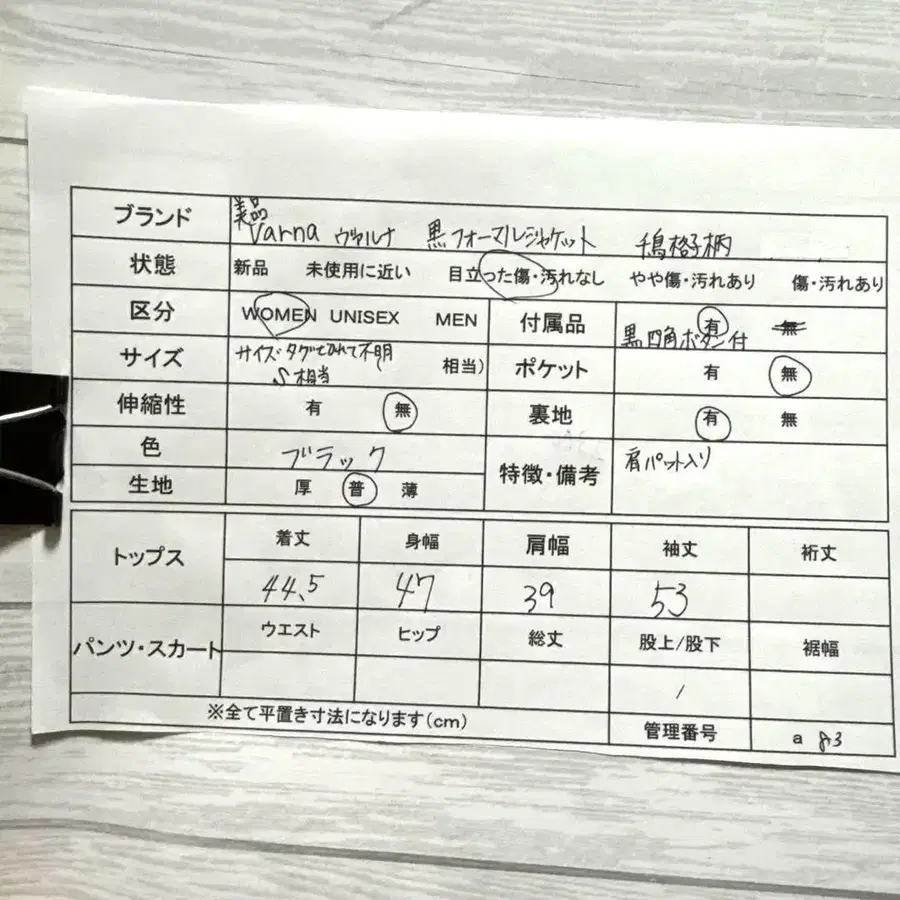 ブランド 美品
Varna ヴァルナ 黒フォーマルジャケット 千鳥格子柄
状態 新品 未使用に近い 目立った傷・汚れなし やや傷・汚れあり 傷・汚れあり
区分 WOMEN UNISEX MEN 付属品 有 無
黒四角ボタン付
サイズ サイズタグ切れて不明 相当) ポケット 有 無
S相当
伸縮性 有 無 裏地 有 無
色 ブラック 特徴・備考 肩パット入り
生地 厚 普 薄
トップス 着丈 身幅 肩幅 袖丈 裄丈
44.5 47 39 53
パンツ・スカート ウエスト ヒップ 総丈 股上/股下 裾幅
/
※全て平置き寸法になります(cm) 管理番号 a 83